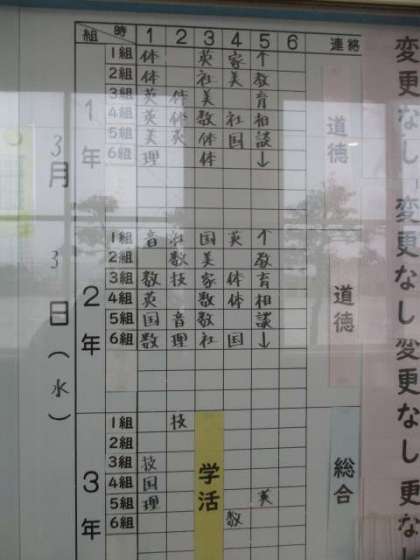 組 時 1 2 3 4 5 6 連絡
1年
1組 体 英 家 ↑
2組 体 社 美 教
3組 英 体 美 育
4組 英 体 数 社 相
5組 美 体 国 談
6組 理 体 ↓
道徳
2年
1組 音 社 国 英 ↑
2組 数 美 教
3組 数 技 家 体 育
4組 英 数 体 相
5組 国 音 数 談
6組 数 理 社 国 ↓
道徳
3年
1組 技
2組
3組 技
4組 国
5組 理 英
6組 数
学活
総合
3月3日(水)
変更なし 変更なし 変更なし